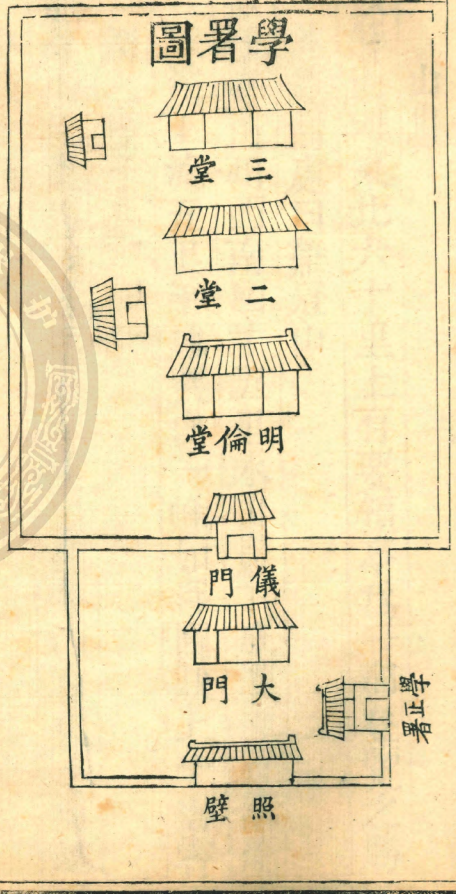 學署圖
三堂
二堂
明倫堂
儀門
大門
學正署
照壁